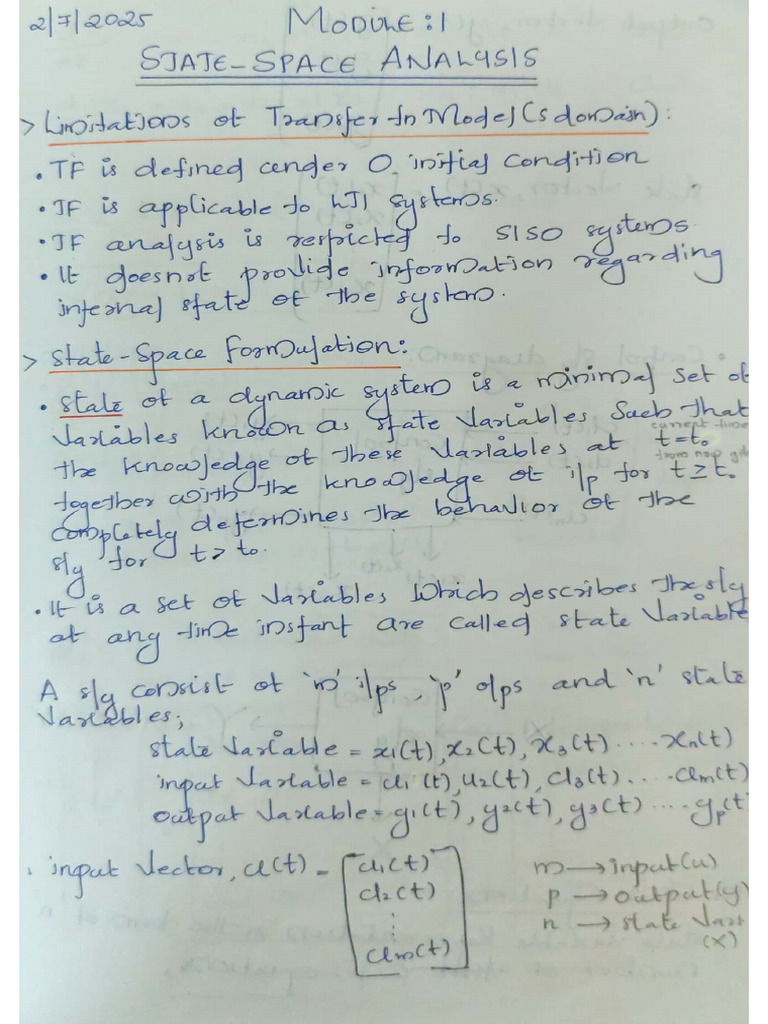 2/7/2025
MODULE:1
STATE-SPACE ANALYSIS
> Limitations of Transfer fn Model (s domain):
• TF is defined under 0 initial condition
• TF is applicable to LTI systems.
• TF analysis is restricted to SISO systems
• It doesnot provide information regarding
internal state of the system.
> State-Space Formulation:
• State of a dynamic system is a minimal set of
variables known as state variables such that
current time
the knowledge of these variables at t=t₀
from now
together with the knowledge of i/p for t≥t₀
completely determines the behavior of the
s/y for t>t₀.
• It is a set of variables which describes the s/y
at any time instant are called state variable
A s/y consist of 'm' i/ps, 'p' o/ps and 'n' state
variables;
state variable = x₁(t), x₂(t), x₃(t)....xₙ(t)
input variable = u₁(t), u₂(t), u₃(t)....uₘ(t)
output variable = y₁(t), y₂(t), y₃(t)....yₚ(t
input vector, u(t) = [u₁(t)
u₂(t)
⋮
uₘ(t)]
m → input(u)
p → output(y)
n → state vari
(x)